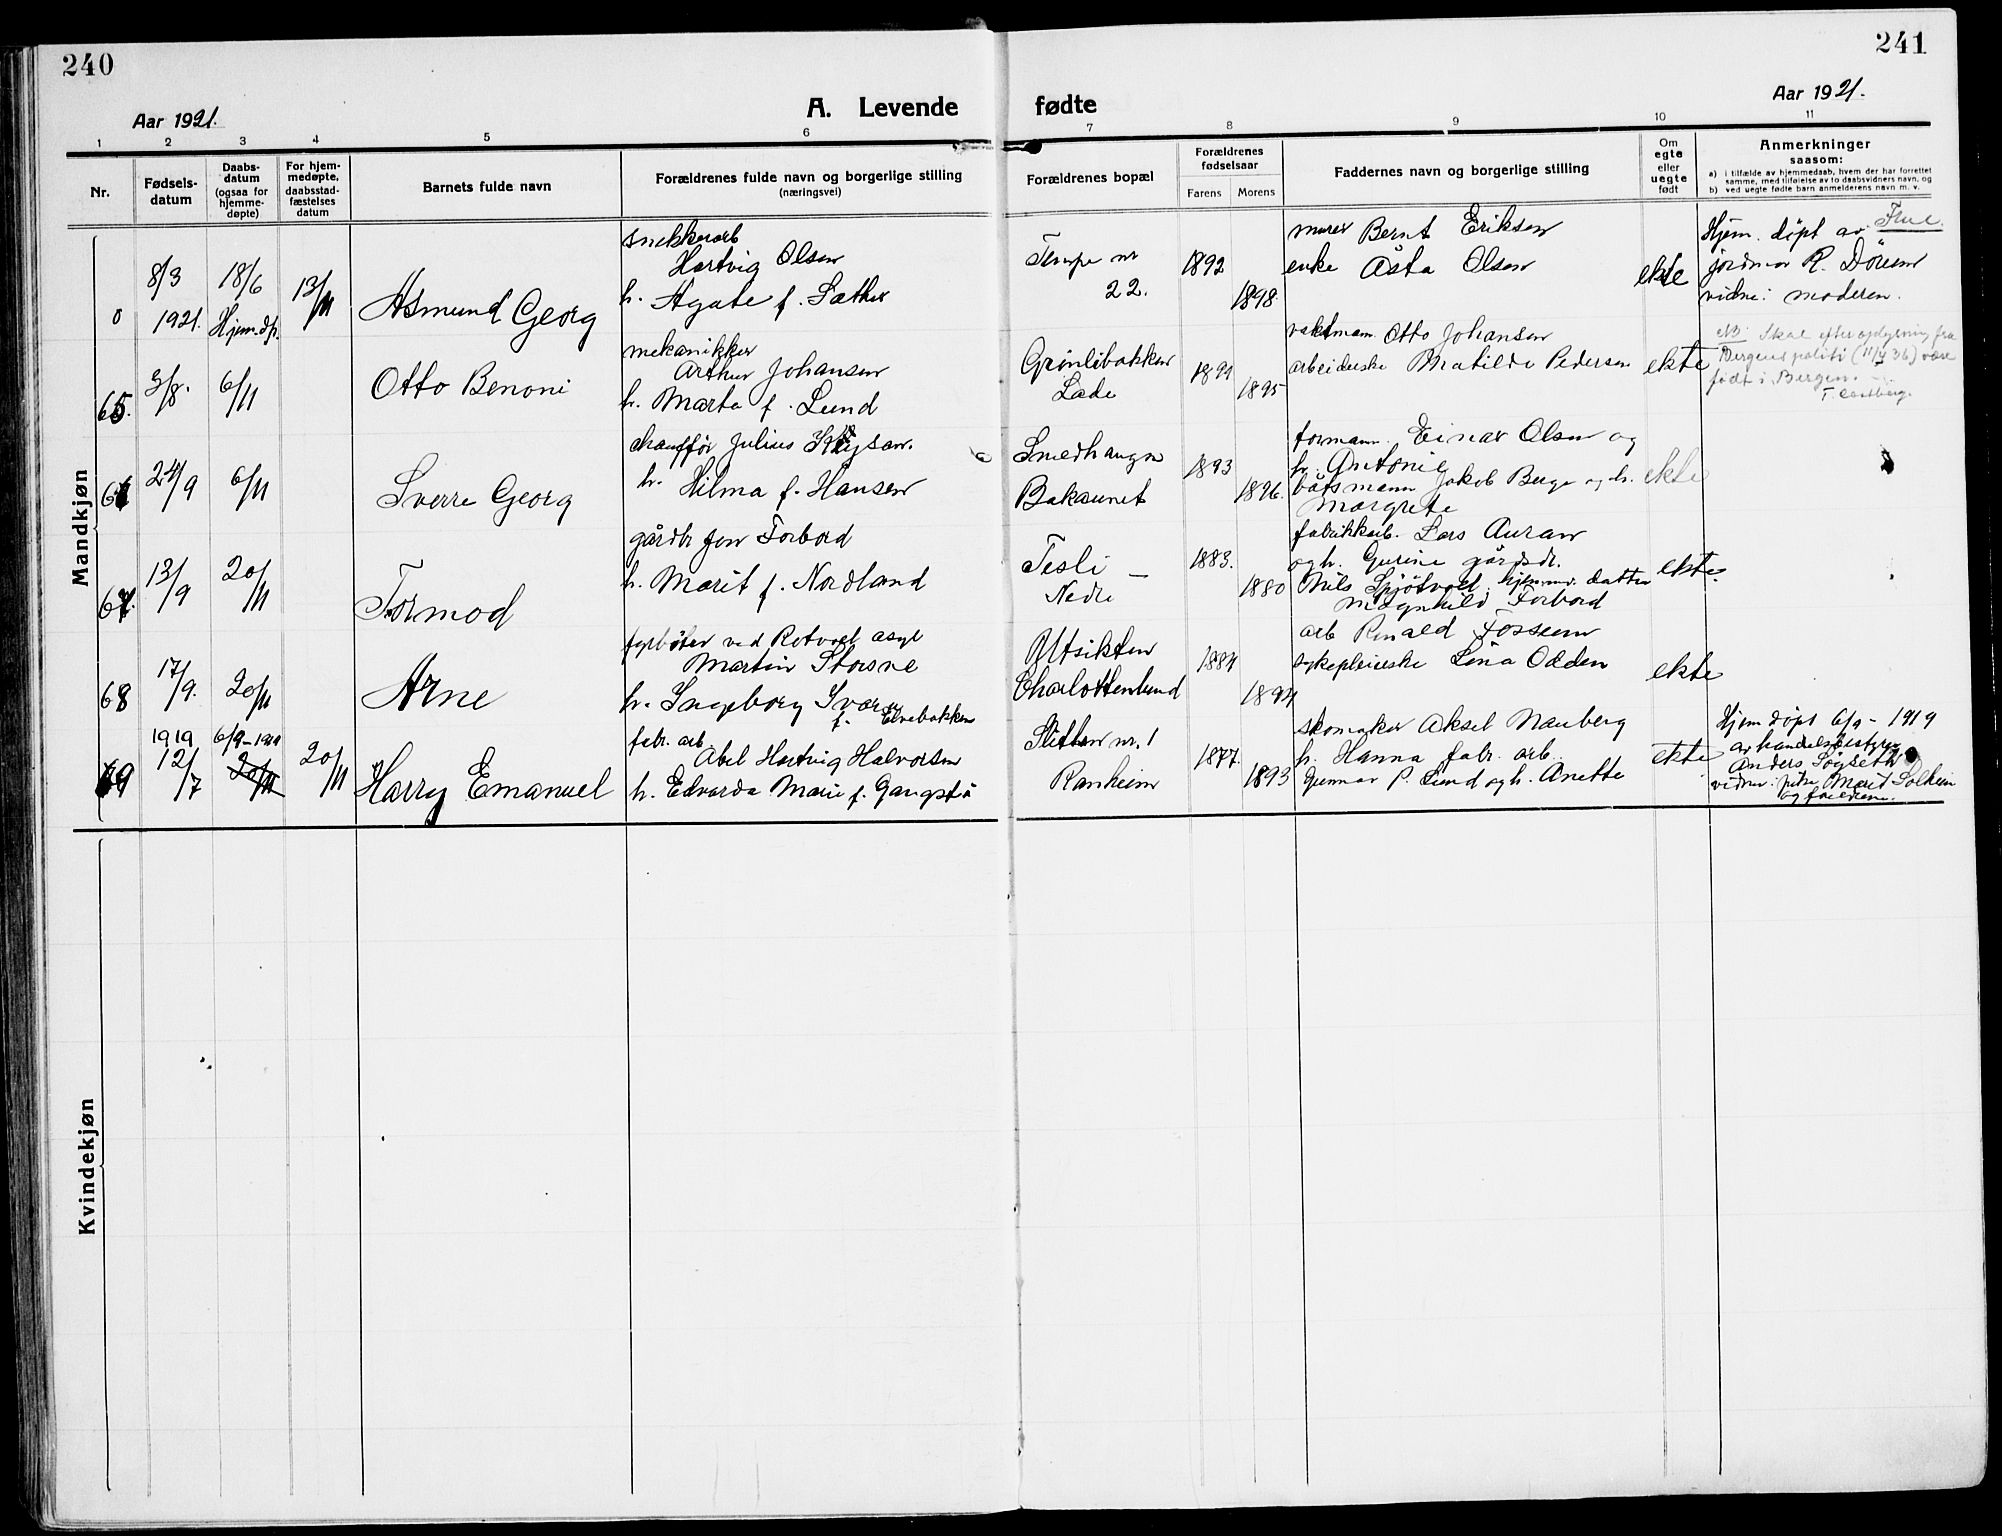 240
241
Aar 1921.
A. Levende fødte
Aar 1921.
1 2 3 4 5 6 7 8 9 10 11
Nr.
Fødsels-
datum
Daabs-
datum
(ogsaa for
hjemme-
døpte)
For hjem-
medøpte,
daabsstad-
fæstelses
datum
Barnets fulde navn
Forældrenes fulde navn og borgerlige stilling
(næringsvei)
Forældrenes bopæl
Forældrenes
fødselsaar
Farens Morens
Faddernes navn og borgerlige stilling
Om
egte
eller
uegte
født
Anmerkninger
saasom:
a) i tilfælde av hjemmedaab, hvem der har forrettet
samme, med tilføielse av to daabsvidners navn, og
b) ved uegte fødte barn anmelderens navn m. v.
Mandkjøn
0
8/3
1921.
18/6
Hjem.dp.
13/11
Asmund Georg
snekkerarb
Hartvig Olsen
h. Agate f. Sæther
Tempe nr
22.
1892
1898.
murer Bernt Eriksen
enke Åsta Olsen
ekte
Hjem. døpt av
jordmor R.
vidne: moderen.
65.
3/8.
6/11
Otto Benoni
mekanikker
Arthur Johansen
h. Marta f. Lund
Grønlibakken
Lade
1891
1895
vaktmann Otto Johansen
arbeiderske Matilde Pedersen
ekte
NB. Skal efter oplysning fra
Bergens politi (11/4 36) være
født i Bergen.
66
24/9
6/11
Sverre Georg
chauffør Julius
h. Hilma f. Hansen
Smedhaugen
Bakaunet
1893
1896.
formann Einar Olsen og
h. Antonie
båtsmann Jakob Berge og h.
Margrete
ekte
67.
13/9
20/11
Tormod
gårdbr Jon Forbord
h. Marit f. Nordland
Tesli
Nedre
1883.
1880
fabrikkarb. Lars Auran
og h. Gurine gårdsdr.
Nils Spjøtvoll hjemmev. datter
Magnhild Forbord
ekte.
68
17/9.
20/11
Arne
fyrbøter ved Rotvoll asyl
Martin Storsve
h. Ingeborg Ivara
f. Elvebakken
Utsikten
Charlottenlund
1884
1894
arb Ronald Fossum
sykepleierske Lina Odden
ekte
69
1919
12/7
6/9-1919
20/11
20/11
Harry Emanuel
fabr. arb
Abel Hartvig Halvorsen
h. Edvarda Marie f. Gangstø
Sletten nr. 1
Ranheim
1877.
1893
skomaker Aksel Nauberg
h. Hanna fabr. arb.
Gunnar P. Lund og h. Anette
ekte
Hjem døpt 6/9 - 1919
av handelsbestyrer
Anders Søgseth
vidner: Marit Solheim
og faderen.
Kvindekjøn